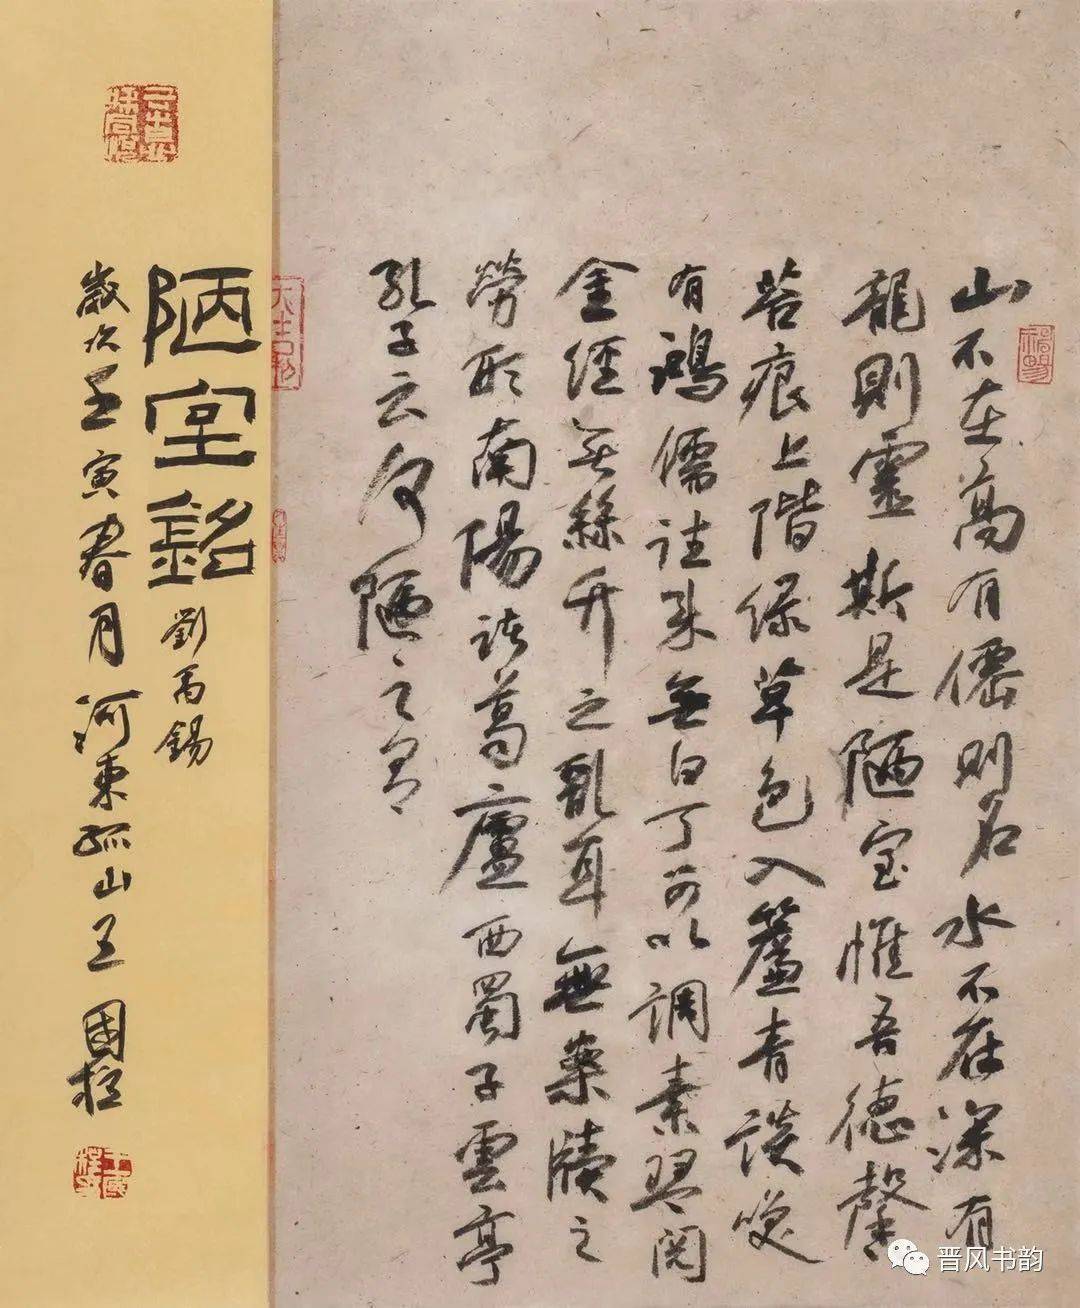 山不在高有僊則名水不在深有
龍則靈斯是陋室惟吾德馨
苔痕上階緑草色入簾青談笑
有鴻儒往来無白丁可以調素琴閱
金經無絲竹之亂耳無案牘之
勞形南陽諸葛廬西蜀子雲亭
孔子云何陋之有
陋室銘
劉禹錫
歲次壬寅春月河東孤山王國
晋风书韵